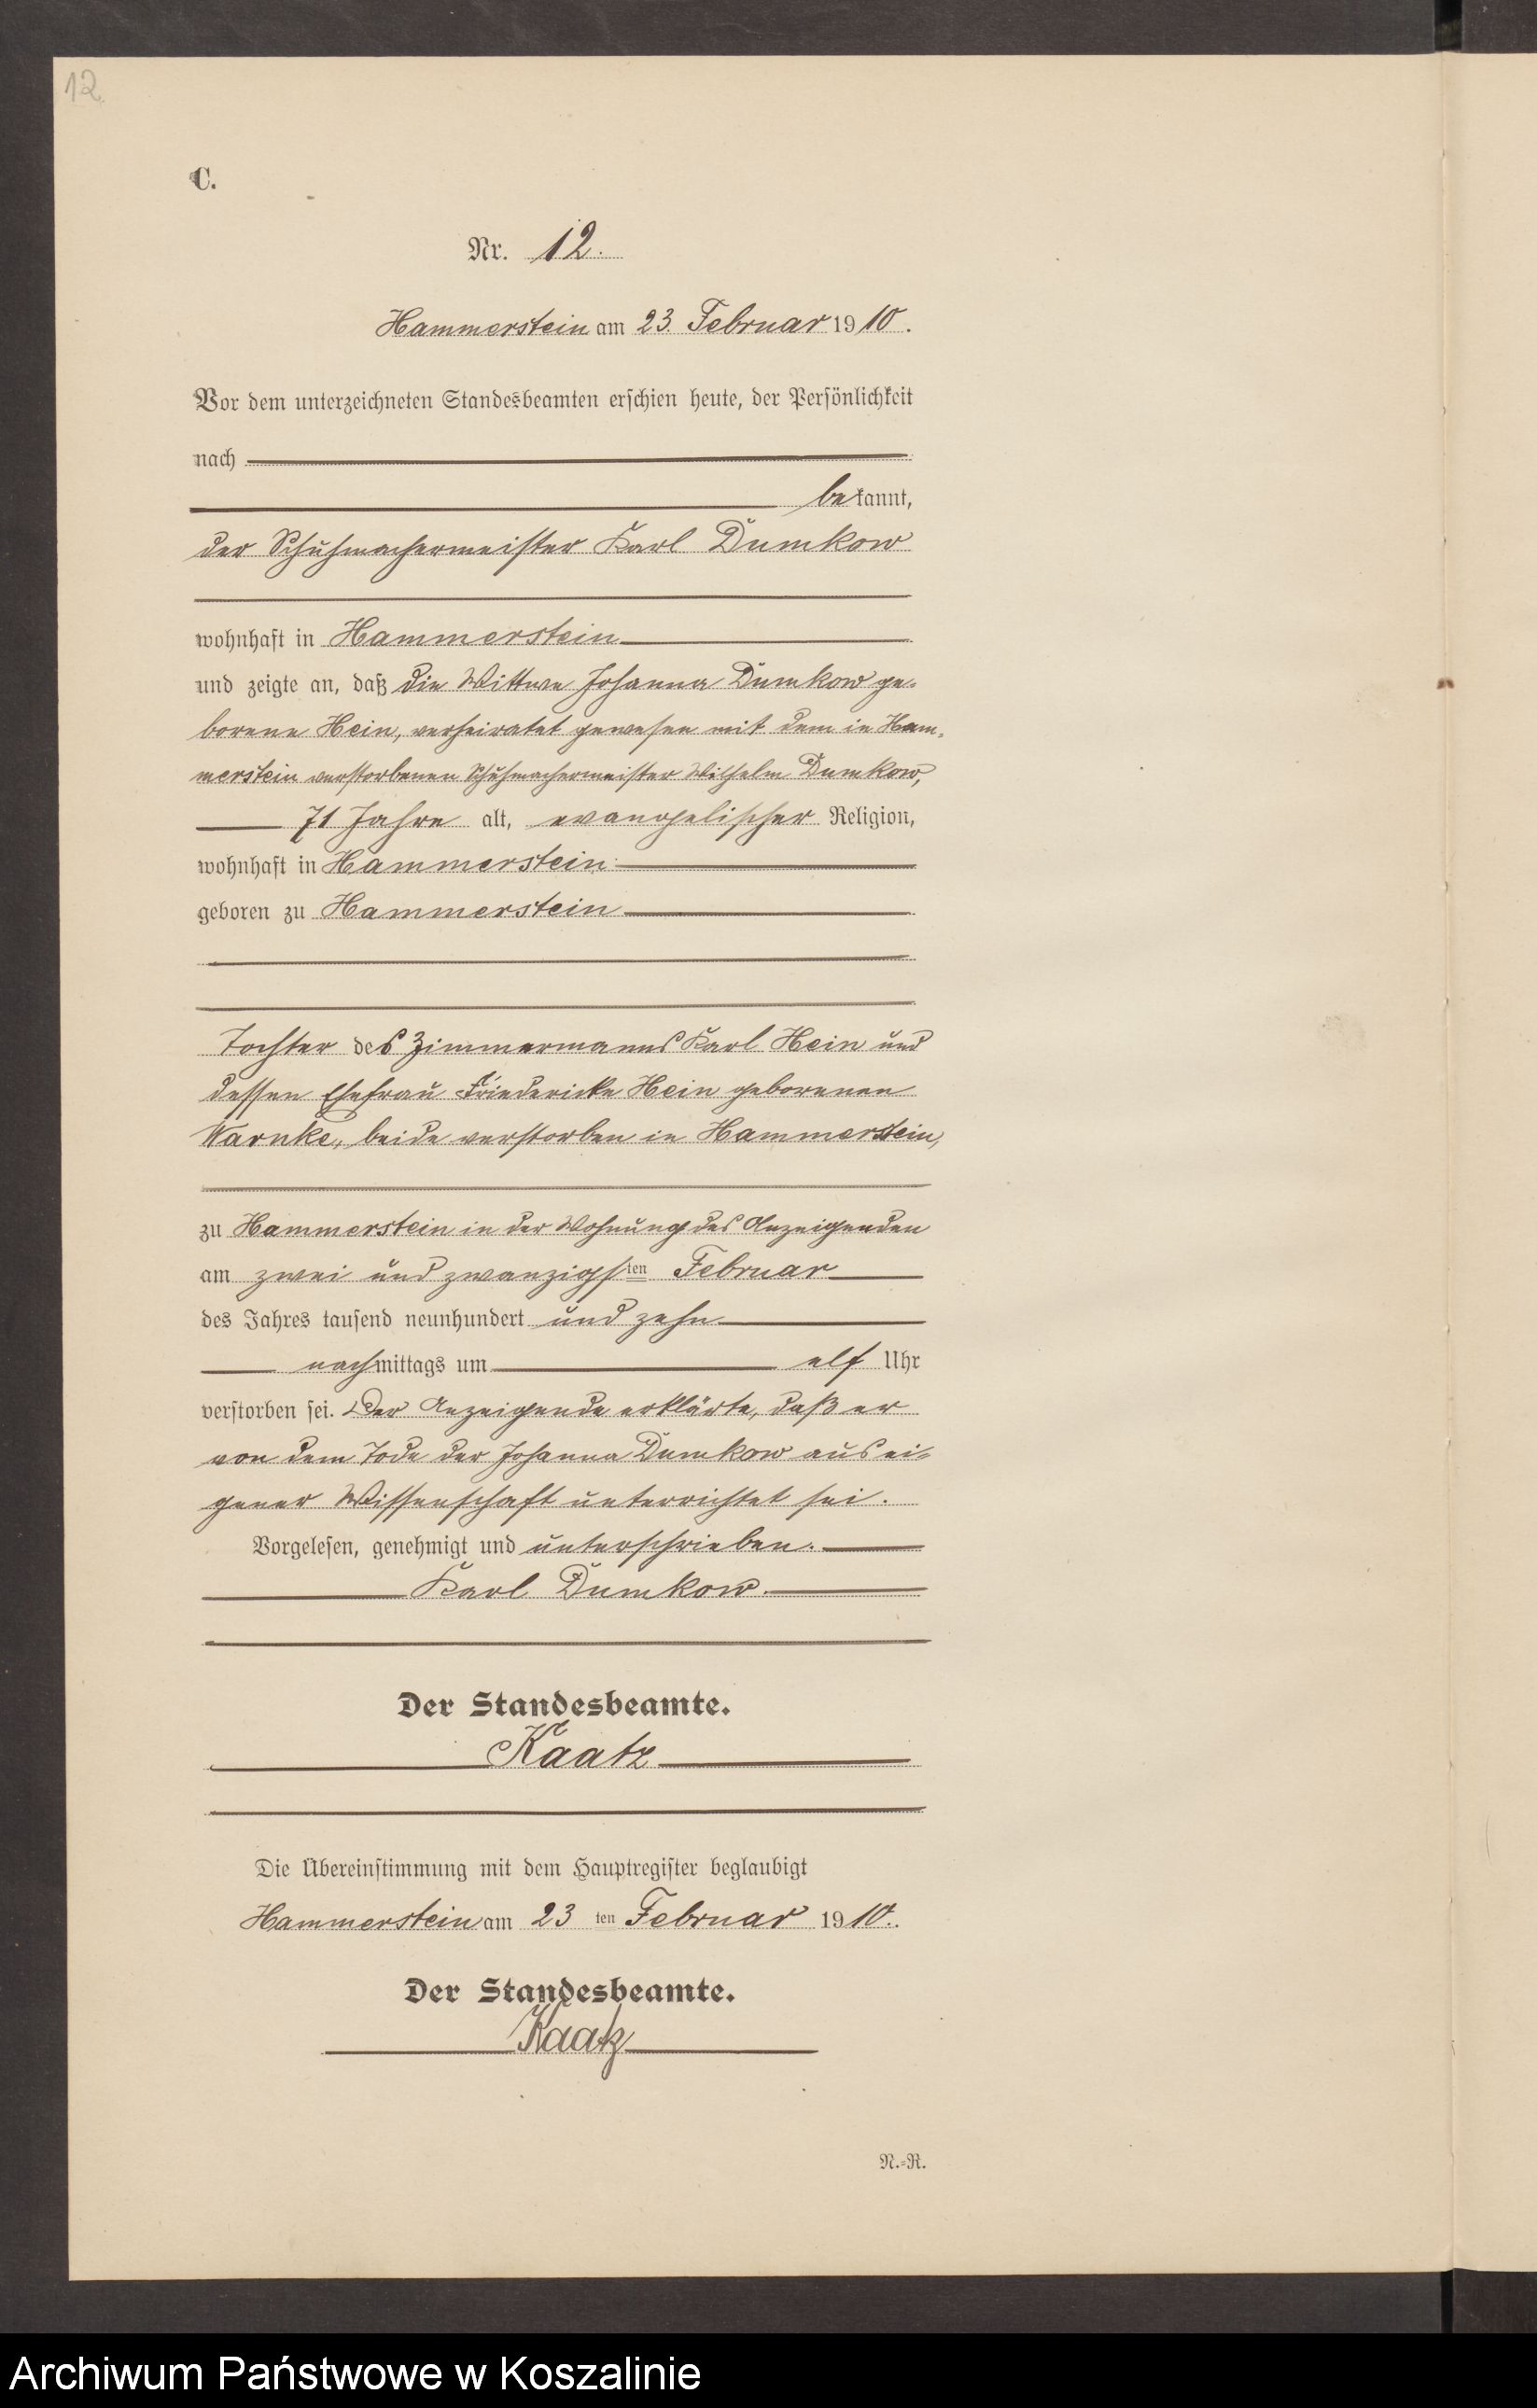 12
C.
Nr. 12.
Hammerstein am 23. Februar 1910.
Vor dem unterzeichneten Standesbeamten erschien heute, der Persönlichkeit
nach
bekannt,
der Schuhmachermeister Karl Dumkow
wohnhaft in Hammerstein
und zeigte an, daß die Wittwe Johanna Dumkow ge-
borene Hein, verheiratet gewesen mit dem in Ham-
merstein verstorbenen Schuhmachermeister Wilhelm Dumkow,
71 Jahre alt, evangelischer Religion,
wohnhaft in Hammerstein
geboren zu Hammerstein
Tochter des Zimmermanns Karl Hein und
dessen Ehefrau Friedericke Hein geborenen
Warnke, beide verstorben in Hammerstein,
zu Hammerstein in der Wohnung des Anzeigenden
am zwei und zwanzigsten Februar
des Jahres tausend neunhundert und zehn
nachmittags um elf Uhr
verstorben sei. Der Anzeigende erklärte, daß er
von dem Tode der Johanna Dumkow aus ei-
gener Wissenschaft unterrichtet sei.
Vorgelesen, genehmigt und unterschrieben.
Karl Dumkow.
Der Standesbeamte.
Kaatz
Die Übereinstimmung mit dem Hauptregister beglaubigt
Hammerstein am 23 ten Februar 1910.
Der Standesbeamte.
Kaatz
N.-R.
Archiwum Państwowe w Koszalinie